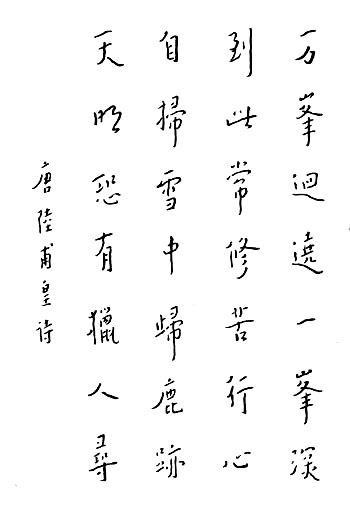 万峯迴遶一峯深
到此常修苦行心
自掃雪中歸鹿跡
天明恐有獵人尋
唐陸甫皇詩